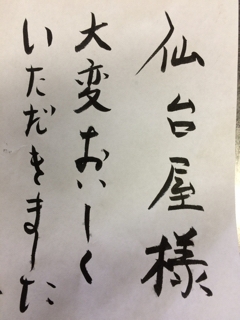 仙台屋様
大変おいしく
いただきました